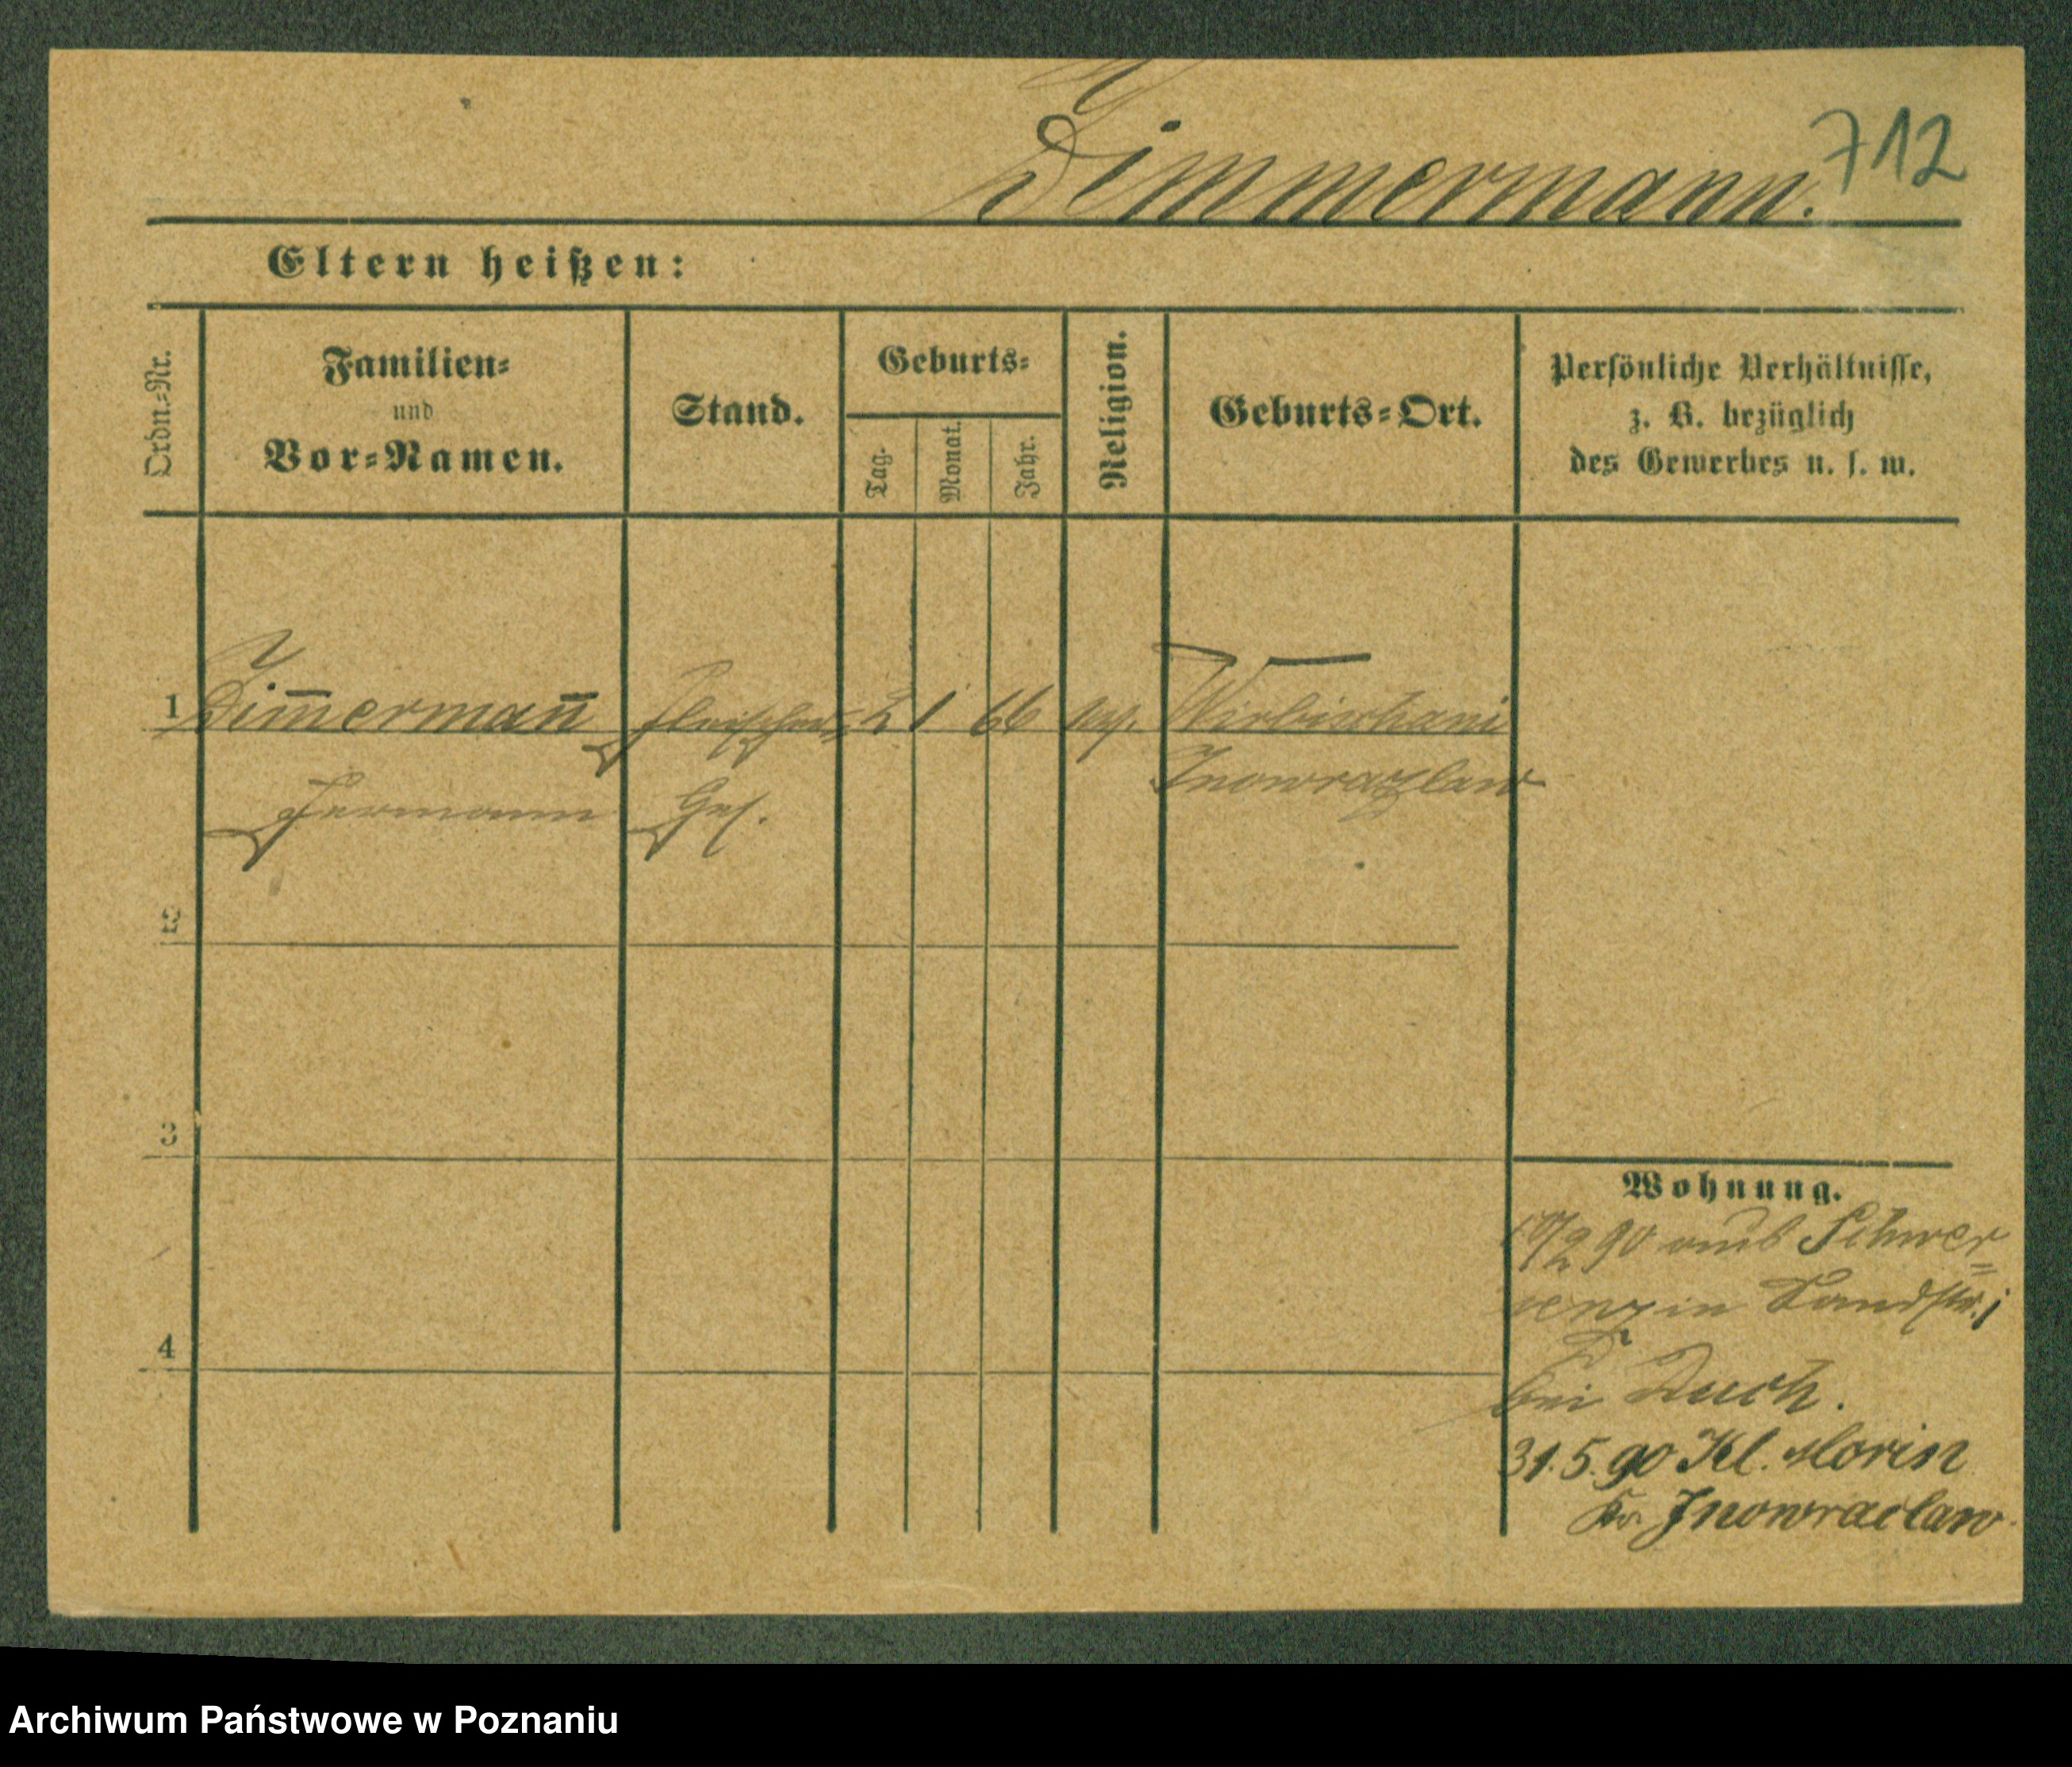 Zimmermann.
712
Eltern heißen:
Ordn.-Nr.
Familien-
und
Vor-Namen.
Stand.
Geburts-
Tag.
Monat.
Jahr.
Religion.
Geburts-Ort.
Persönliche Verhältnisse,
z. B. bezüglich
des Gewerbes u. s. w.
1
Zim̅erman̅
Fleischer=
2
1
66
Inowrazlaw
Hermann
Ges.
2
3
4
Wohnung.
90 aus Schwer=
senz in Sandstr.
bei
31.5.90 Kl. Morin
Kr. Inowraclaw.
Archiwum Państwowe w Poznaniu